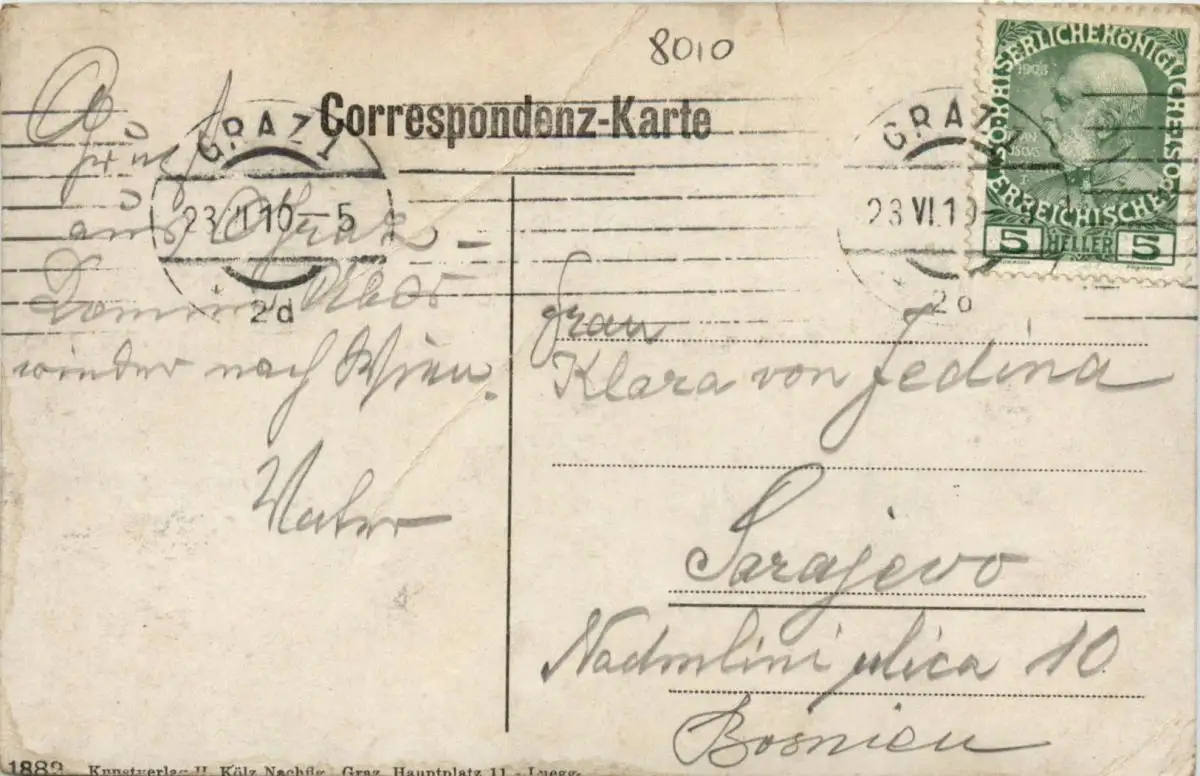 8010
Correspondenz-Karte
KAISERLICHE KÖNIGLICHE
ÖSTERREICHISCHE
5 HELLER 5
GRAZ 1
23 VI 10-5
2d
GRAZ 1
23 VI.1
2d
Gruß
aus Graz
Komme
wieder nach Wien.
Vater
Frau
Klara von Jedina
Sarajevo
ulica 10
Bosnien
1882 Kunstverlag H. Kölz Nachflg. Graz, Hauptplatz 11 - Luegg.